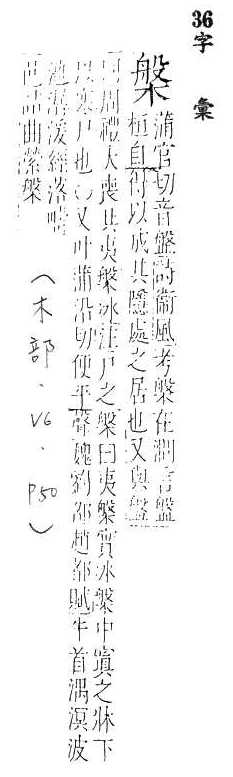 36字彙
槃
蒲官切音盤詩衞風考槃在澗言盤
桓自得以成其隱處之居也又與盤
同周禮大喪共夷槃冰注尸之槃曰夷槃實冰槃中寘之牀下
以寒尸也○又叶蒲沿切便平聲魏劉邵趙都賦牛首渦溟波
池潺湲經落疇
邑詰曲縈槃
(木部.V6.P50)